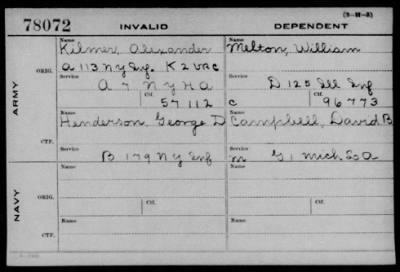 (3-H-3)
78072 INVALID DEPENDENT
Name Name
Kilmer, Alexander Melton, William
ORIG. A 113 N Y Inf. K 2 VRC
Service Service
A 7 N Y H A D 125 Ill Inf
ARMY
Ctf. Ctf.
57112 c 96773
Name Name
Henderson, George D Campbell, David B
CTF.
Service Service
B 179 N Y Inf m G 1 Mich S A
Name Name
NAVY
ORIG.
Service Ctf. Service Ctf.
Name Name
CTF.
Service Service